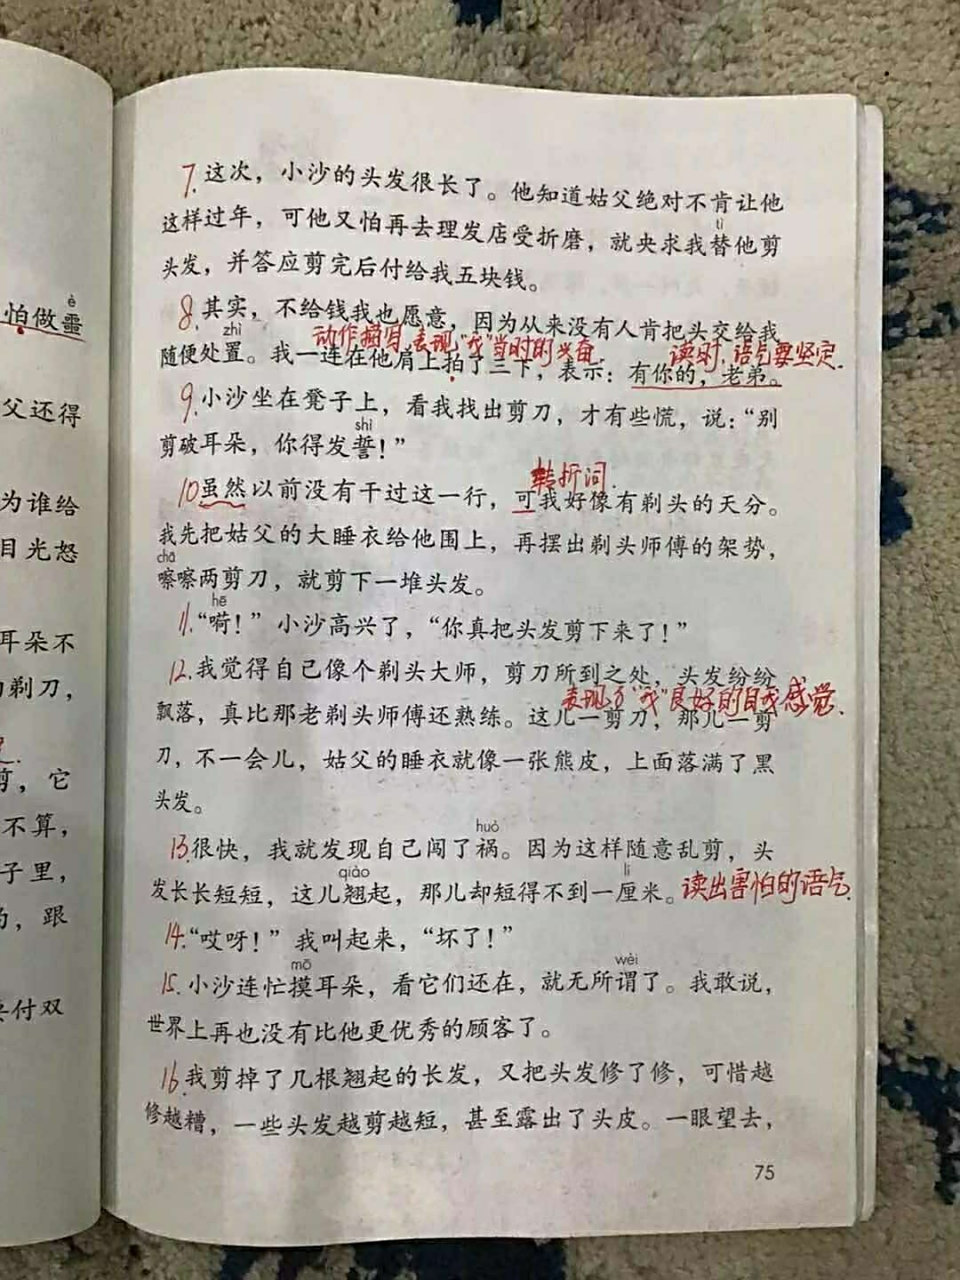 è
怕做噩
父还得
为谁给
目光怒
耳朵不
剃刀，
剪，它
不算，
子里，
，跟
付双
7.这次，小沙的头发很长了。他知道姑父绝对不肯让他
这样过年，可他又怕再去理发店受折磨，就央求我替他剪
tì
头发，并答应剪完后付给我五块钱。
8.其实，不给钱我也愿意，因为从来没有人肯把头交给我
zhì
动作描写，表现“我”当时的兴奋.
读时，语气要坚定.
随便处置。我一连在他肩上拍了三下，表示：有你的，老弟。
9.小沙坐在凳子上，看我找出剪刀，才有些慌，说：“别
shì
剪破耳朵，你得发誓！”
转折词.
10虽然以前没有干过这一行，可我好像有剃头的天分。
我先把姑父的大睡衣给他围上，再摆出剃头师傅的架势，
chā
嚓嚓两剪刀，就剪下一堆头发。
hē
11.“嗬！”小沙高兴了，“你真把头发剪下来了！”
12.我觉得自己像个剃头大师，剪刀所到之处，头发纷纷
表现了“我”良好的自我感觉.
飘落，真比那老剃头师傅还熟练。这儿一剪刀，那儿一剪
刀，不一会儿，姑父的睡衣就像一张熊皮，上面落满了黑
头发。
huò
13.很快，我就发现自己闯了祸。因为这样随意乱剪，头
qiào lí
发长长短短，这儿翘起，那儿却短得不到一厘米。读出害怕的语气.
14.“哎呀！”我叫起来，“坏了！”
mō wèi
15.小沙连忙摸耳朵，看它们还在，就无所谓了。我敢说，
世界上再也没有比他更优秀的顾客了。
16.我剪掉了几根翘起的长发，又把头发修了修，可惜越
修越糟，一些头发越剪越短，甚至露出了头皮。一眼望去，
75